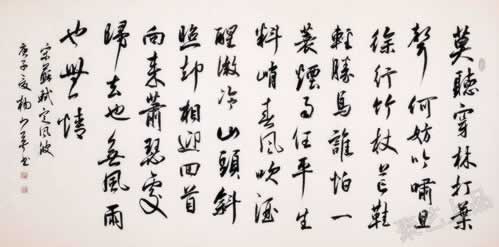 莫聽穿林打葉
聲何妨吟嘯且
徐行竹杖芒鞋
輕勝馬誰怕一
蓑煙雨任平生
料峭春風吹酒
醒微冷山頭斜
照却相迎回首
向來蕭瑟處
歸去也無風雨
也無情
宋蘇軾定風波
庚子夏楊